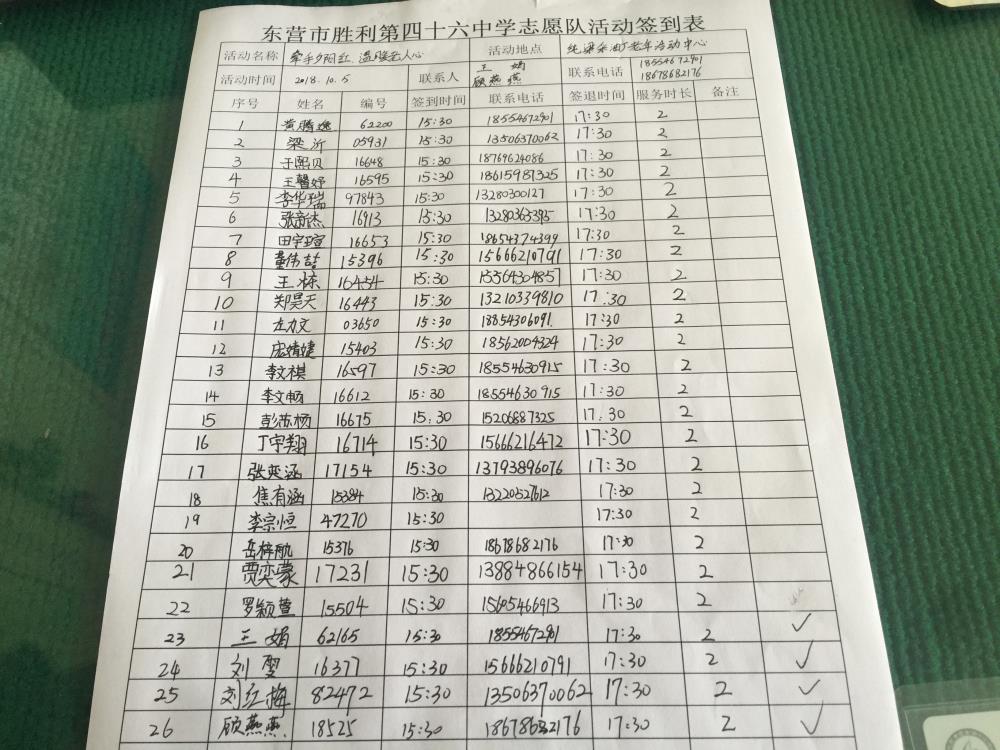 东营市胜利第四十六中学志愿队活动签到表
活动名称 牵手夕阳红 温暖老人心 活动地点 纯梁采油厂老年活动中心
活动时间 2018.10.5 联系人 王娟 顾燕燕 联系电话 18554672901 18678682176
序号 姓名 编号 签到时间 联系电话 签退时间 服务时长 备注
1 黄腾逸 62200 15:30 18554672901 17:30 2
2 梁沂 05931 15:30 13506370062 17:30 2
3 于熙贝 16648 15:30 18769624086 17:30 2
4 王馨妤 16595 15:30 18615987325 17:30 2
5 李华瑞 97843 15:30 13280300127 17:30 2
6 张奇杰 16913 15:30 13280363395 17:30 2
7 田宇瑄 16653 15:30 18654374399 17:30 2
8 董伟喆 15396 15:30 15666210791 17:30 2
9 王栋 16454 15:30 15564304857 17:30 2
10 郑昊天 16443 15:30 13210339810 17:30 2
11 左力文 03650 15:30 18854306091 17:30 2
12 婧婕 15403 15:30 18562004324 17:30 2
13 李文祺 16597 15:30 18554630915 17:30 2
14 李文畅 16612 15:30 18554630915 17:30 2
15 彭陈杨 16675 15:30 15206887325 17:30 2
16 丁宇翔 16714 15:30 15666216472 17:30 2
17 张奕涵 17154 15:30 13793896076 17:30 2
18 焦有涵 15384 15:30 13220527612 17:30 2
19 李宗恒 47270 15:30 17:30 2
20 岳梓航 15376 15:30 18678682176 17:30 2
21 贾奕蒙 17231 15:30 13884866154 17:30 2
22 罗颖萱 15504 15:30 15605466913 17:30 2
23 王娟 62165 15:30 18554672901 17:30 2 ✓
24 刘雯 16377 15:30 15666210791 17:30 2 ✓
25 刘红梅 82472 15:30 13506370062 17:30 2 ✓
26 顾燕燕 18525 15:30 18678682176 17:30 2 ✓